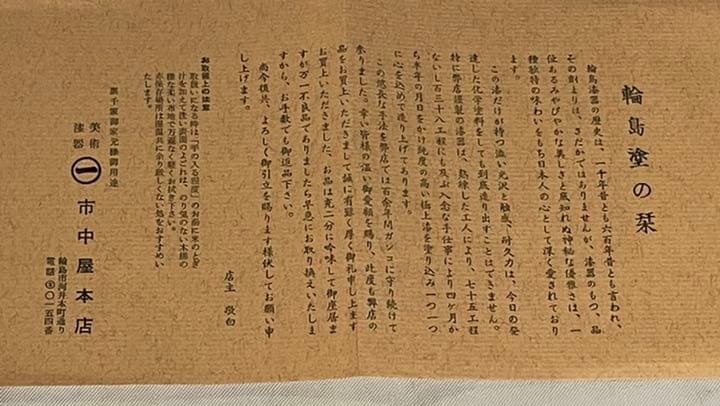 輪島塗の栞
輪島漆器の歴史は、一千年昔とも六百年昔とも言われ、
その創まりは、さだかではありませんが、漆器のもつ、品
位あるみやびやかな美しさと底知れぬ神秘な優雅さは、一
種独特の味わいをもち日本人の心として深く愛されており
ます。
この漆だけが持つ澁い光沢と触感、耐久力は、今日の発
達した化学塗料をしても到底造り出すことはできません。
特に弊店謹製の漆器は、熟練した工人により、七十五工程
ないし百三十八工程にも及ぶ入念な手仕事により四ヶ月か
ら半年の月日をかけ純度の高い極上漆を塗り込み一つ一つ
に心を込めて造り上げてあります。
この悠長な手法を弊店では百余年間ガンコに守り続けて
参りました。幸い皆様の温い御愛顧を賜り、此度も弊店の
品をお買上いただきまして誠に有難く厚く御礼申し上げます
お買上いただきました、お品は充二分に吟味して御座居ま
すが万一不良品でありましたら早急にお取り換えいたしま
すから、お手数でも御返品下さい。
尚今後共、よろしく御引立を賜ります様伏してお願い申
し上げます。
店主 敬白
お取扱上の注意
取扱いになる時は、“手の入る程度”のお湯に米のとぎ
汁を加えて洗い表面のよごれは、のり気のない木綿の
様な柔い布地で万遍なく軽くお拭き下さい。
亦保存場所は湿温共に余り厳しくない処をおすすめい
たします。
裏千家御家元御用途
美術
漆器
一
市中屋本店
輪島市河井本町通り
電話②〇一五四番